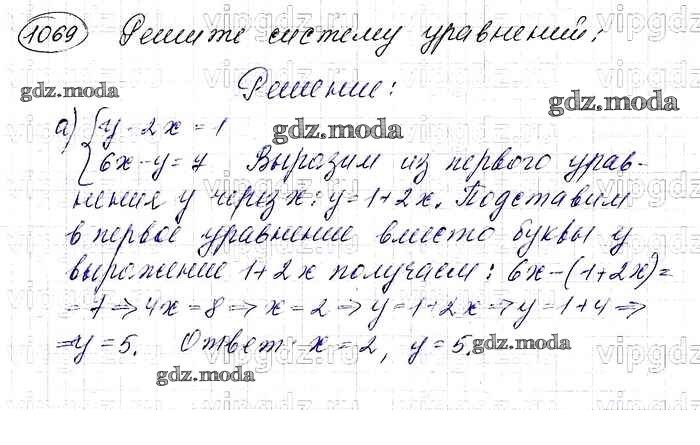 1069 Решите систему уравнений:
Решение:
а) { y - 2x = 1
6x - y = 7 Выразим из первого урав-
нения y через x: y = 1 + 2x. Подставим
в первое уравнение вместо буквы y
выражение 1 + 2x получаем: 6x - (1 + 2x) =
= 7 ⇒ 4x = 8 ⇒ x = 2 ⇒ y = 1 + 2x ⇒ y = 1 + 4 ⇒
⇒ y = 5. Ответ: x = 2, y = 5.
gdz.moda
gdz.moda
gdz.moda
gdz.moda
gdz.moda
vipgdz.ru